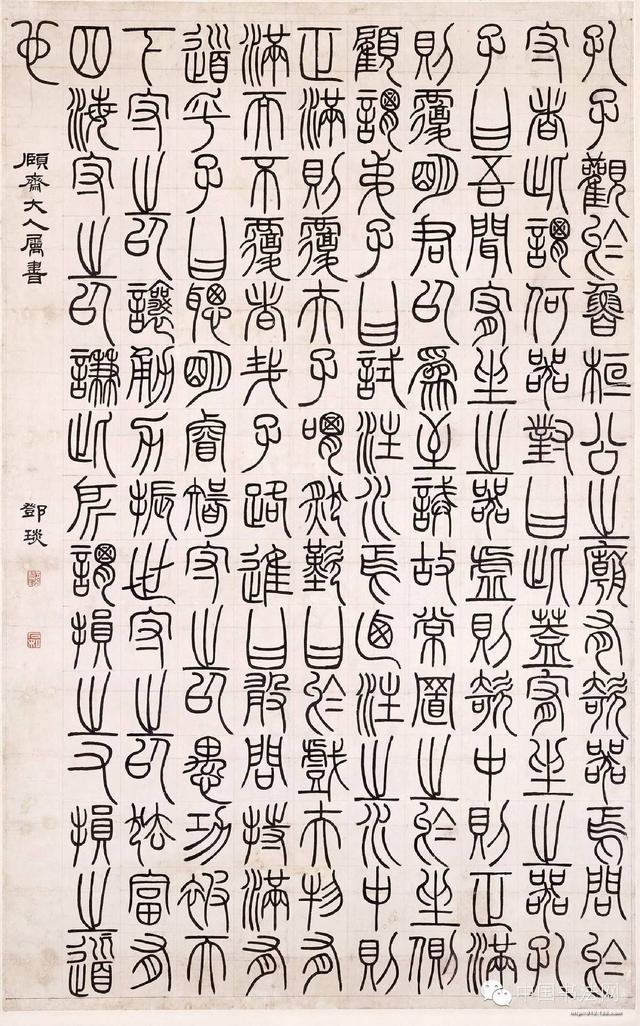 孔子觀於魯桓公之廟有欹器焉問於
守者此謂何器對曰此蓋宥坐之器孔
子曰吾聞宥坐之器虛則欹中則正滿
則覆明君以為至誡故常置之於坐側
顧謂弟子曰試注水焉廼注之水中則
正滿則覆夫子喟然歎曰於戲夫物有
滿而不覆者哉子路進曰敢問持滿有
道乎子曰聰明睿智守之以愚功被天
下守之以讓勇力振世守之以怯富有
四海守之以謙此所謂損之又損之道
也
頤齋大人屬書
鄧琰
中国书法网